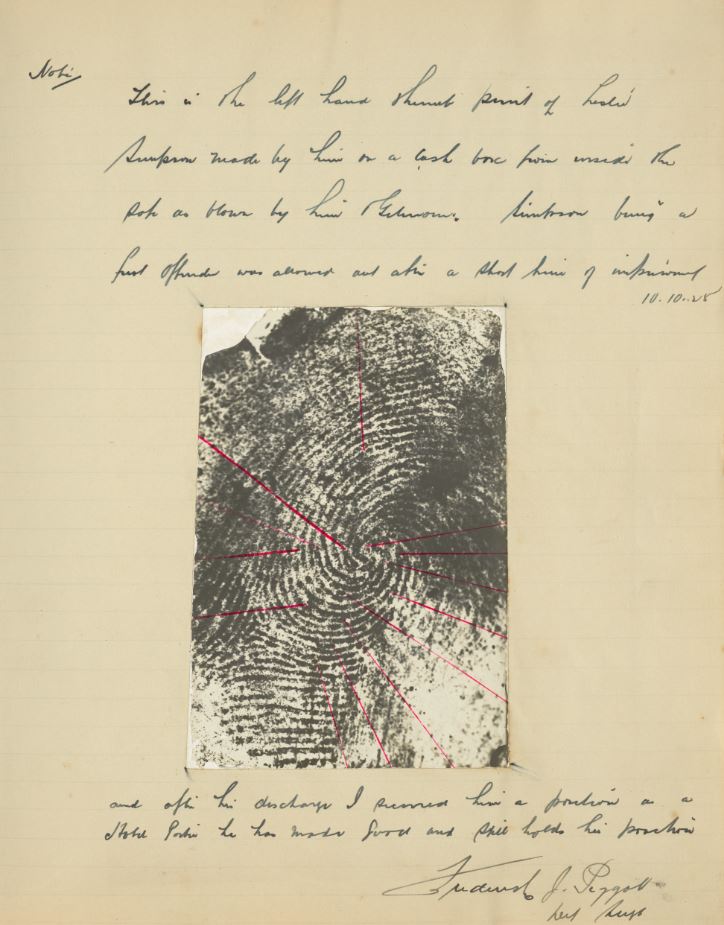 Note
This is the left hand thumb print of Leslie
Simpson made by him on a cash box from inside the
safe as blown by him & Gilmour. Simpson being a
first offender was allowed out after a short time of imprisonment
10.10.28
and after his discharge I secured him a position as a
Hotel Porter he has made good and still holds his position
Frederick J. Piggott
Det Supt